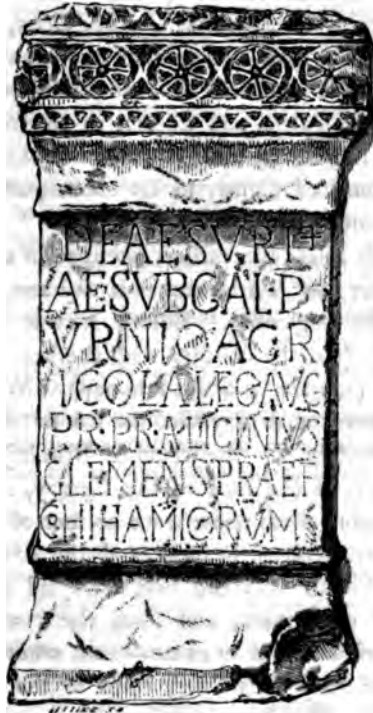 DEAESVRI
AESVBCALP
VRNIO·AGR
ICOLALEG·AVG
PR·PR·A·LICINIVS
CLEMENS PRAEF
CHIHAMIORVM
UTTING SC